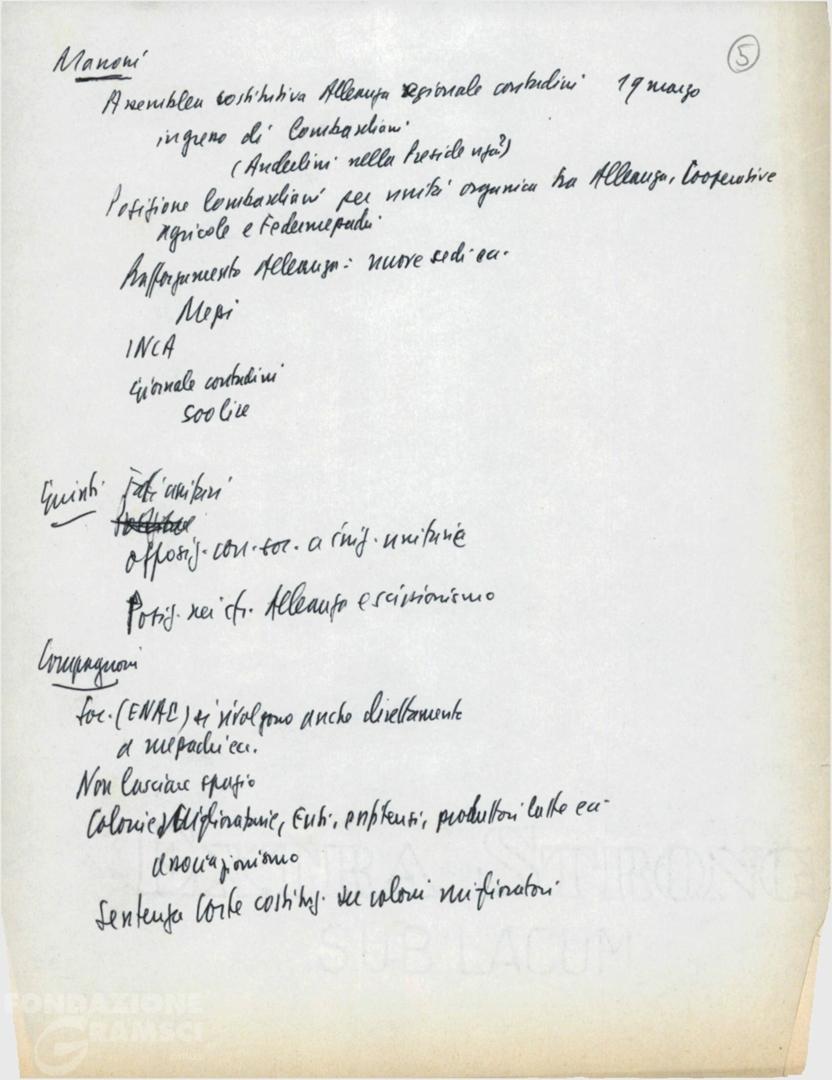 5
Manoni
Assemblea costitutiva Alleanza regionale contadini 19 marzo
ingresso di Lombardiani
(Anderlini nella Presidenza?)
Posizione Lombardiani per unità organica tra Alleanza, Cooperative
agricole e Federmezzadri
Rafforzamento Alleanza: nuove sedi ecc.
Mezzi
INCA
giornale contadini
Quinti unitari
opposiz. con. soc. a iniz. unitarie
Posiz. nei cfr. Alleanza e scissionismo
Compagnoni
Soc. (ENAC) si rivolgono anche direttamente
a mezzadri ecc.
Non lasciare spazio
Colonie miglioratarie, Enti, enfiteusi, produttori latte ecc.
associazionismo
Sentenza Corte costituz. su coloni miglioratori
FONDAZIONE
GRAMSCI
SUB LACUM